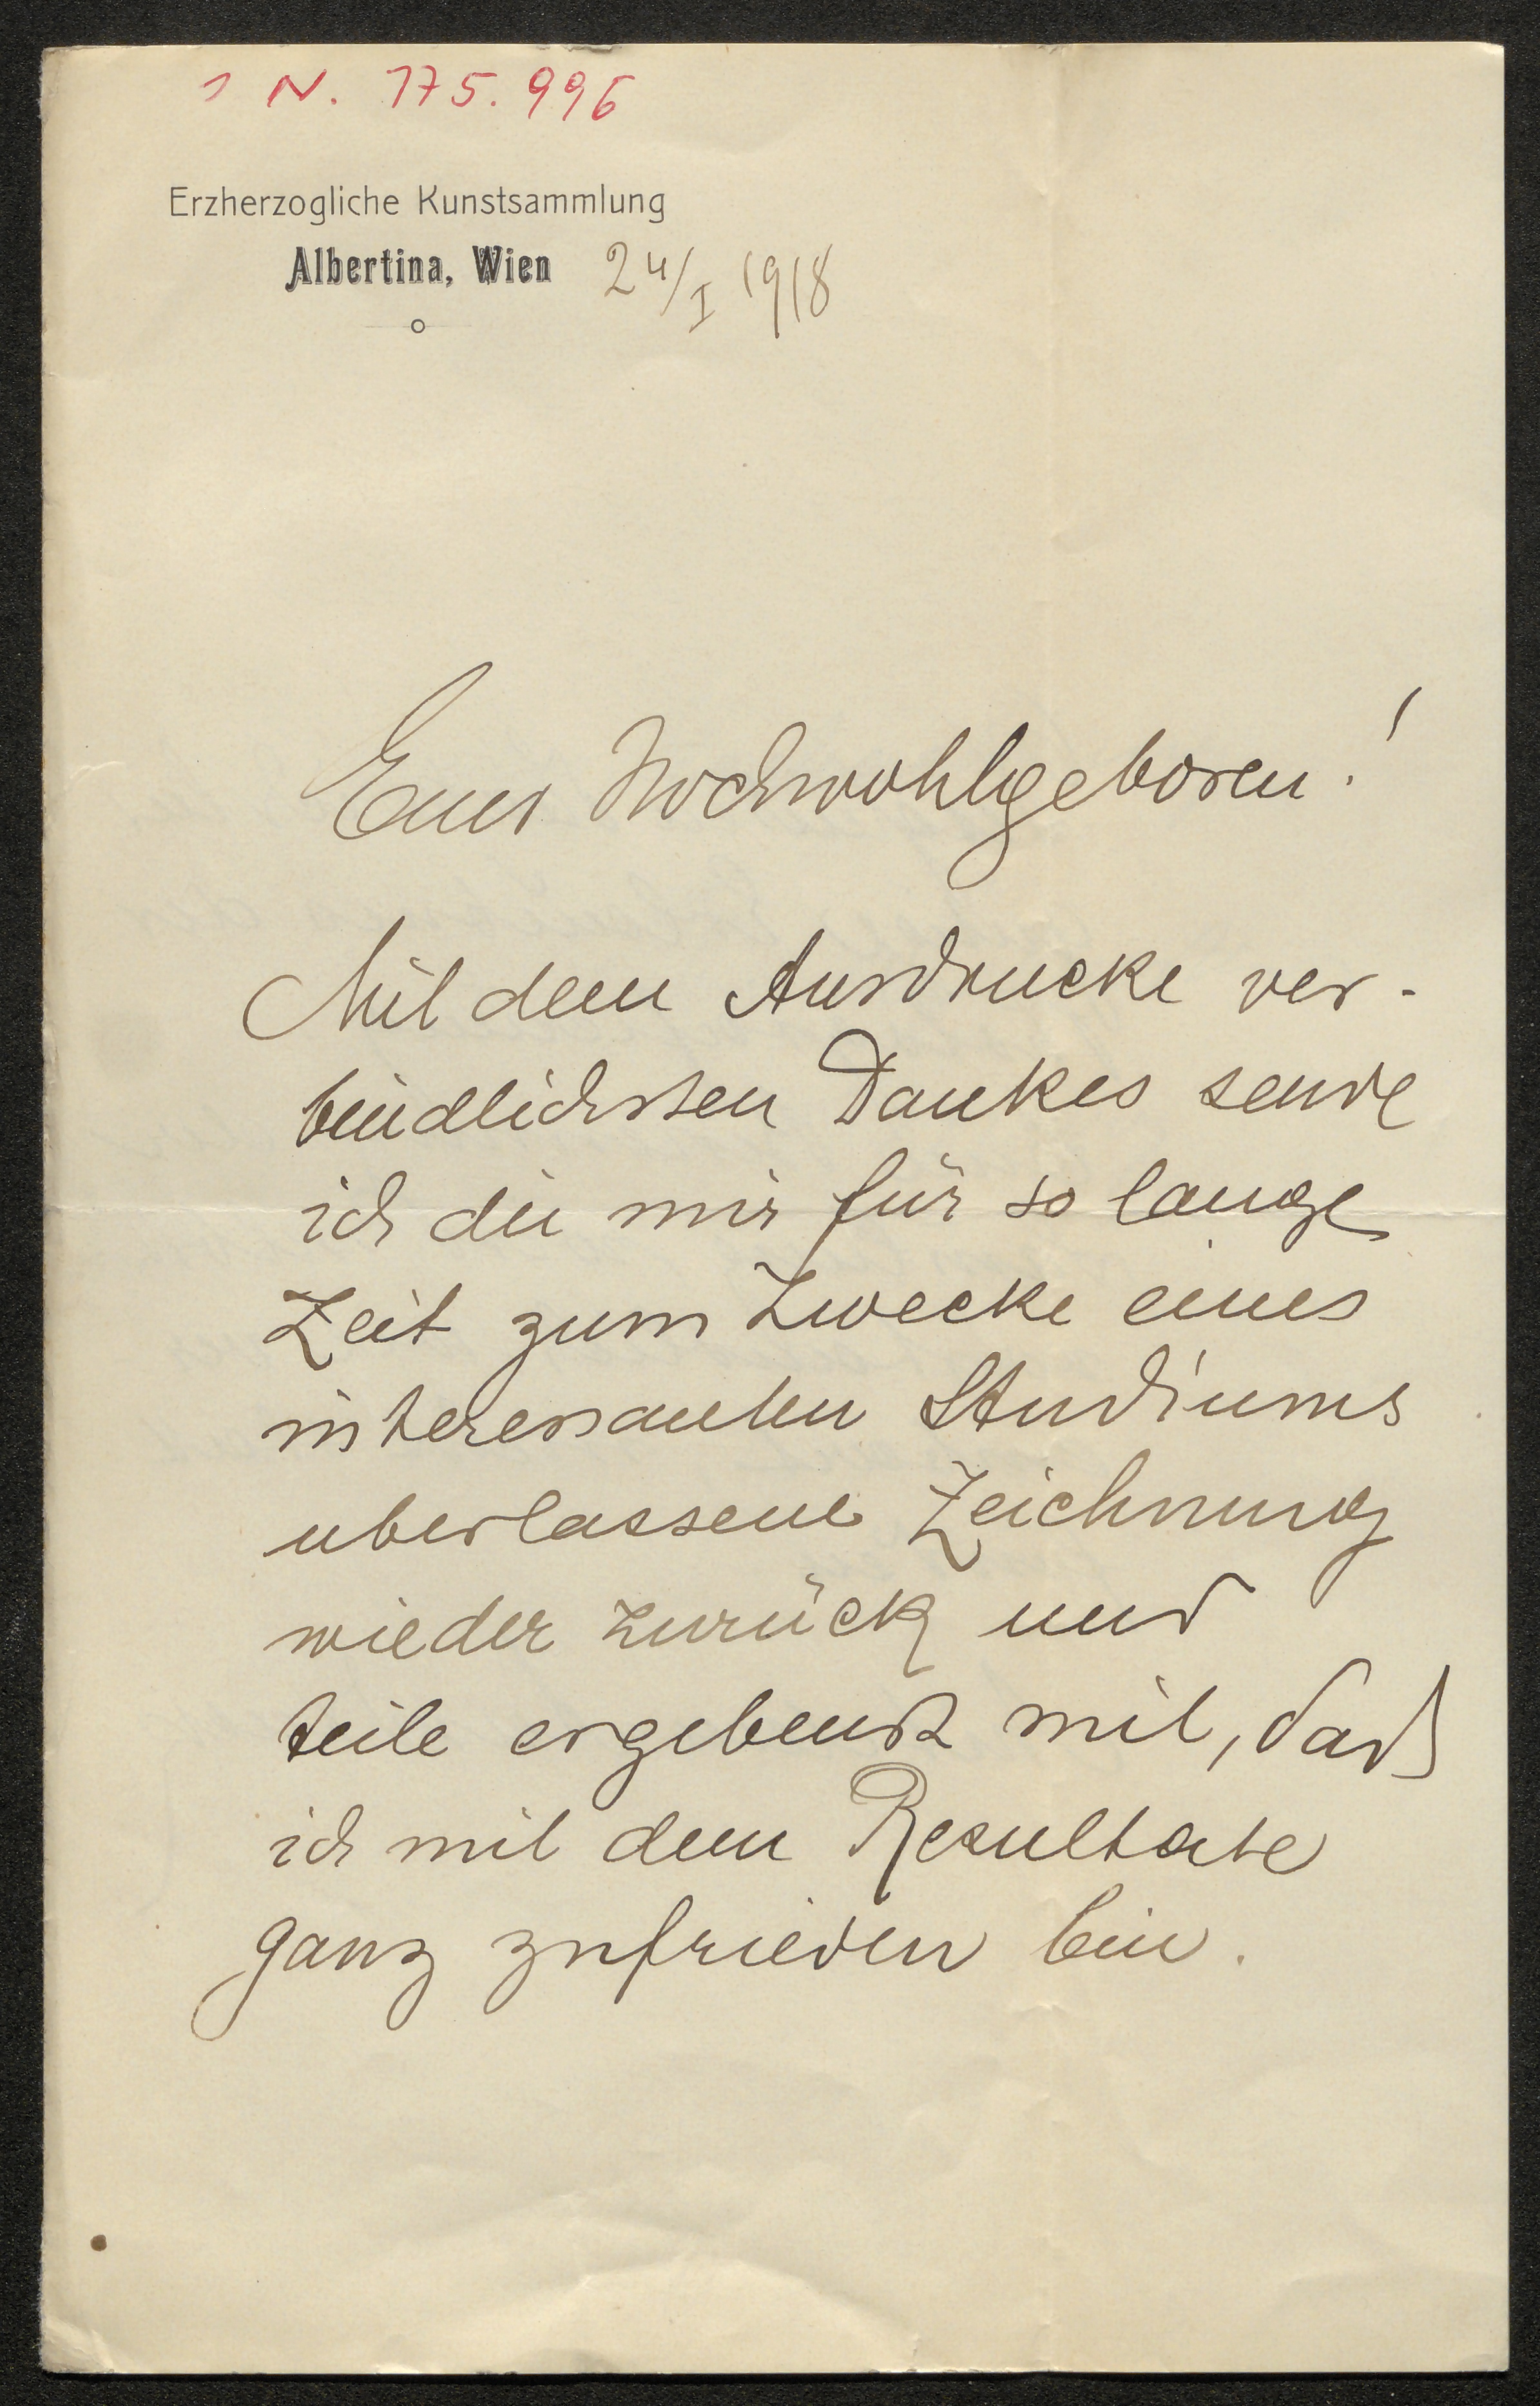 N. 175.996
Erzherzogliche Kunstsammlung
Albertina, Wien 24/I 1918
Euer Hochwohlgeboren!
Mit dem Ausdrucke ver-
bindlichsten Dankes sende
ich die mir für so lange
Zeit zum Zwecke eines
interessanten Studiums
uberlassene Zeichnung
wieder zurück und
teile ergebenst mit, daß
ich mit dem Resultate
ganz zufrieden bin.